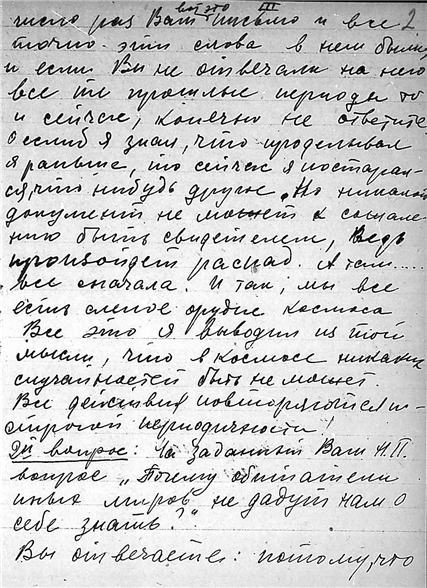 число раз Вам вот это письмо III и все 2
точно эти слова в нем были,
и если Вы не отвечали на него
все те прошлые периоды то
и сейчас, конечно не ответите.
О если б я знал, что проделывал
я раньше, то сейчас я постарал-
ся, что нибудь другое. Но никакой
документ не может к сожале-
нию быть свидетелем, ведь
произойдет распад. А там.....
все сначала. И так, мы все
есть слепое орудие космоса
Все это я выводил из той
мысли, что в космосе никаких
случайностей быть не может.
Все действия повторяются в
строгой периодичности!
2й вопрос: На заданный Вам Н.П.
вопрос „Почему обитатели
иных миров не дадут нам о
себе знать?"
Вы отвечаете: потому, что